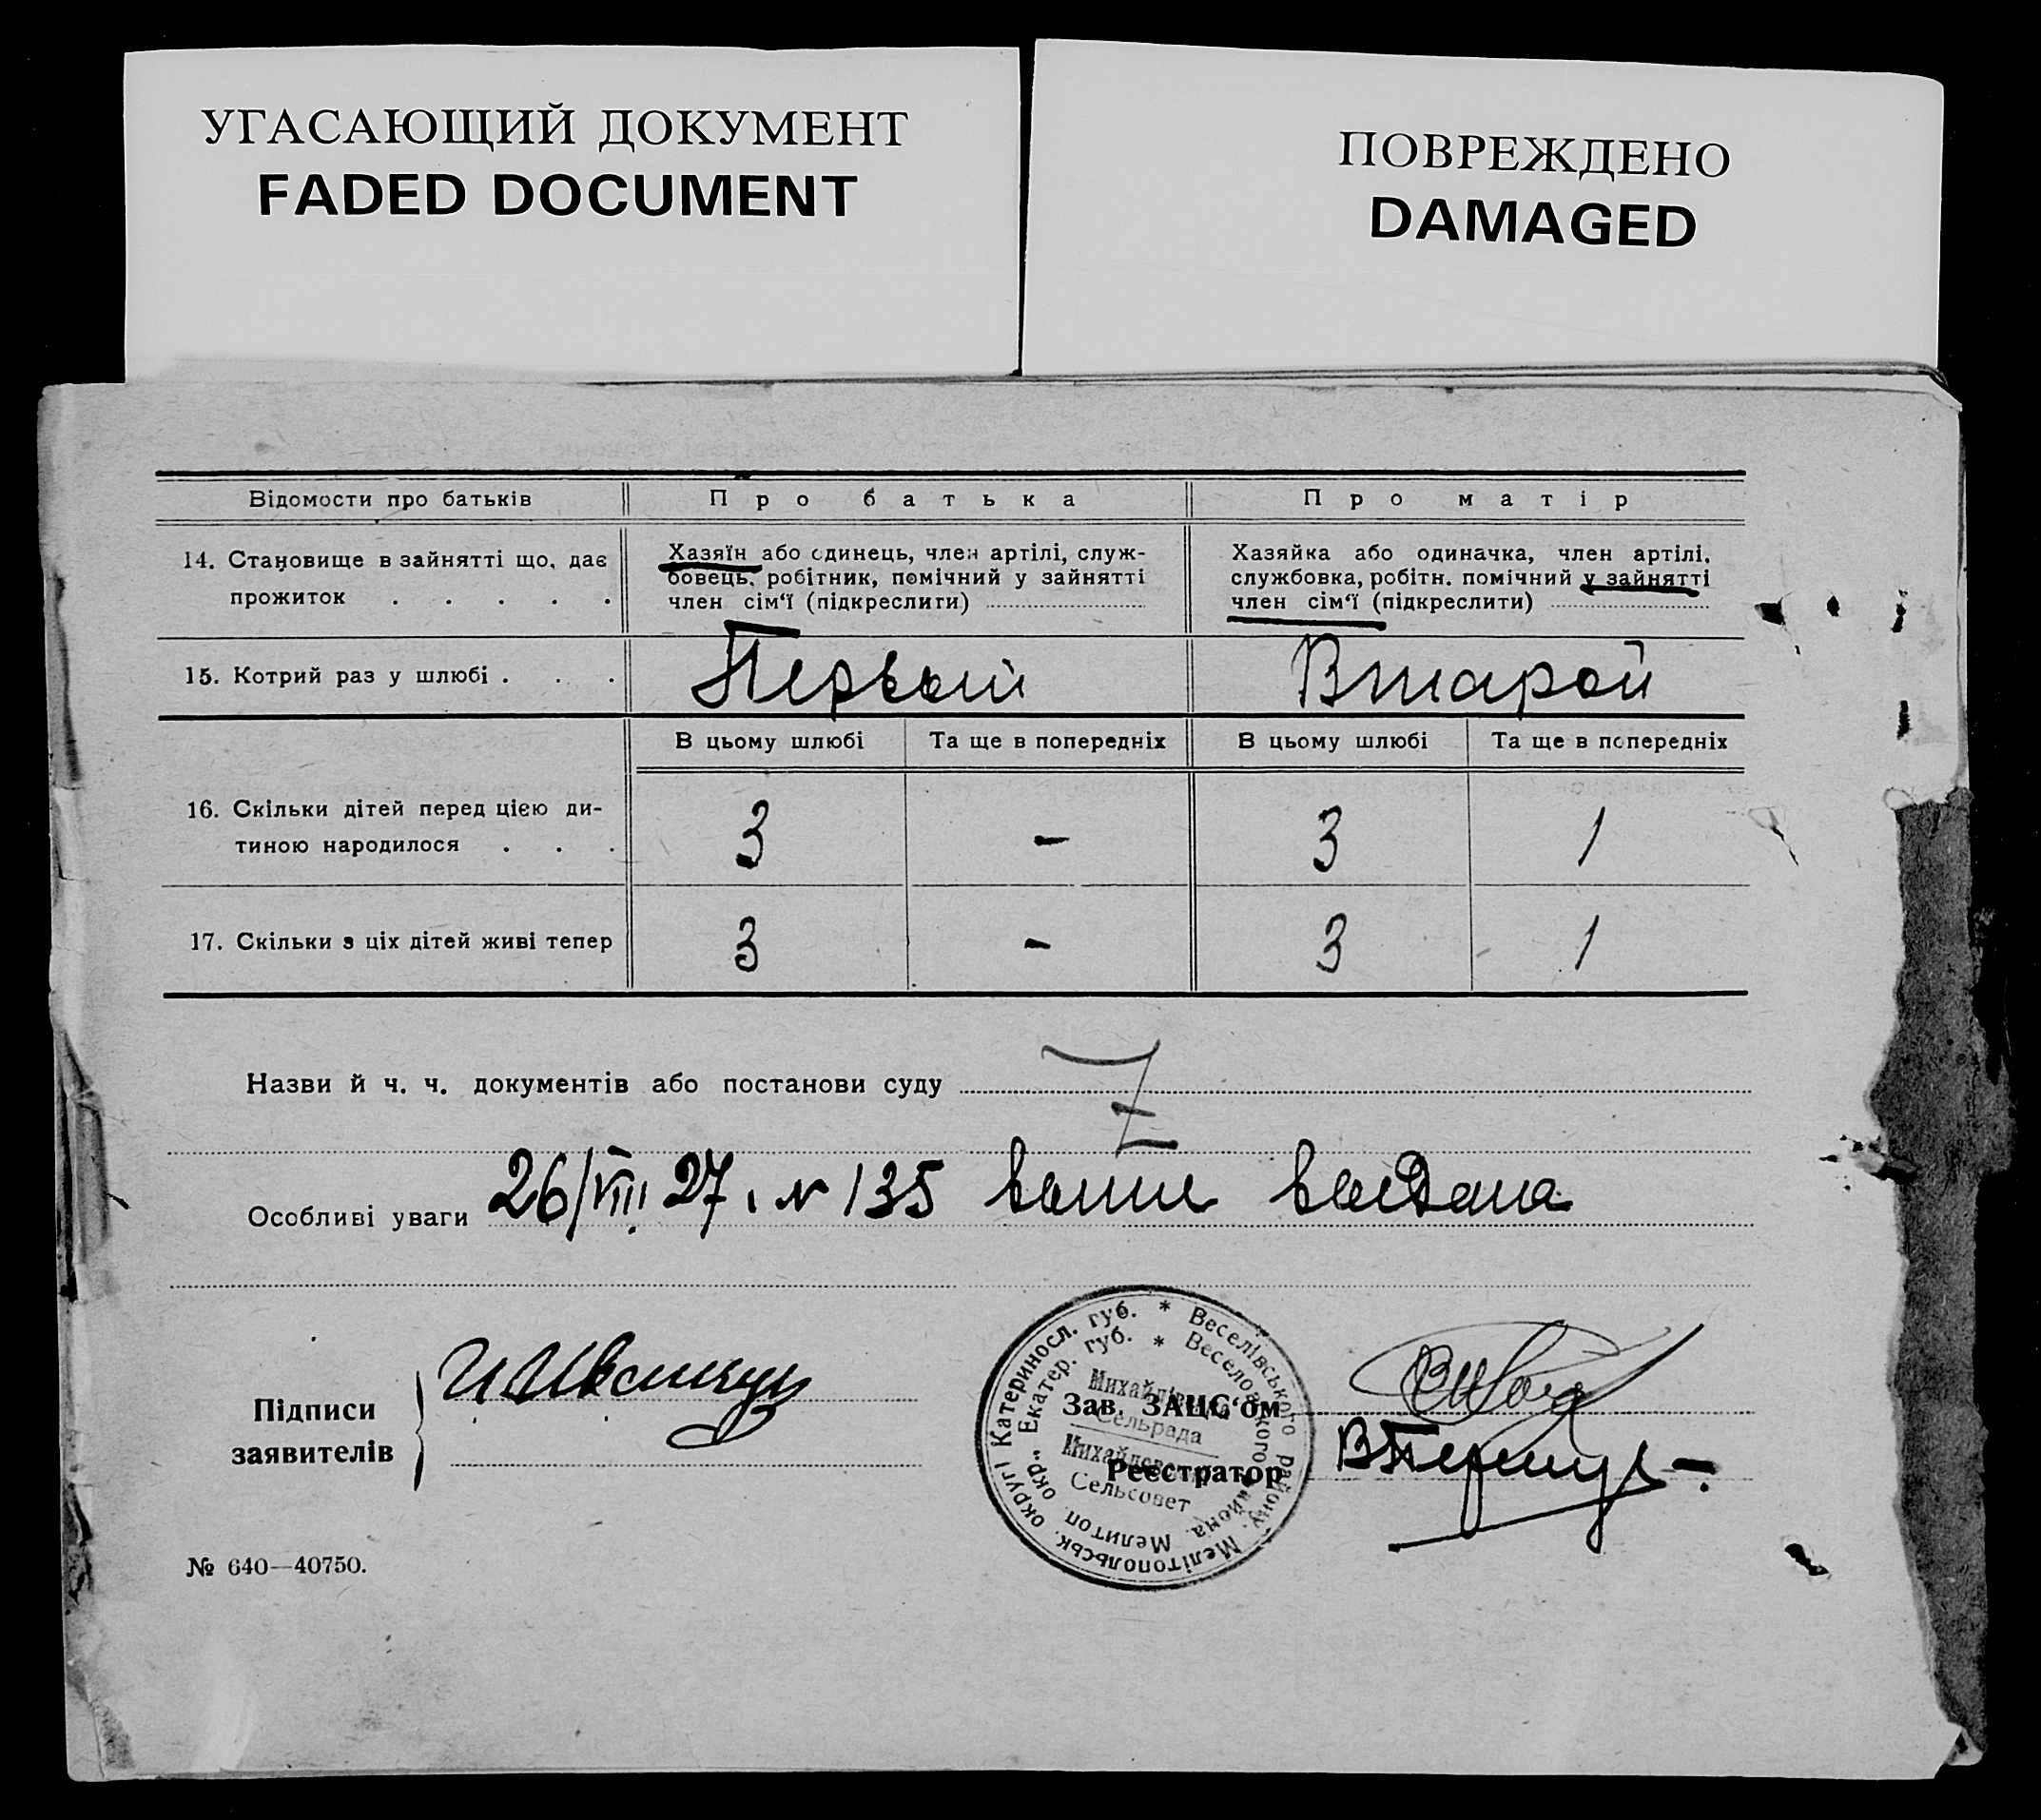 УГАСАЮЩИЙ ДОКУМЕНТ
FADED DOCUMENT
ПОВРЕЖДЕНО
DAMAGED
Відомости про батьків Про батька Про матір
14. Становище в зайнятті що, дає
прожиток . . . . .
Хазяїн або одинець, член артілі, служ-
бовець, робітник, помічний у зайнятті
член сім‘ї (підкреслити)
Хазяйка або одиначка, член артілі,
службовка, робітн. помічний у зайнятті
член сім‘ї (підкреслити)
15. Котрий раз у шлюбі . . . Первый Втарой
В цьому шлюбі Та ще в попередніх В цьому шлюбі Та ще в попередніх
16. Скільки дітей перед цією ди-
тиною народилося . . . 3 - 3 1
17. Скільки з ціх дітей живі тепер 3 - 3 1
Назви й ч. ч. документів або постанови суду
Особливі уваги 26/VIII 27. № 135
Підписи
заявителів
Зав. ЗАЦС‘ом
Реєстратор
Мелітопольськ. округі Катериносл. губ. * Веселівського району.
Мелитоп. окр., Екатер. губ. * Веселовского района.
Сельрада
Сельсовет
№ 640—40750.